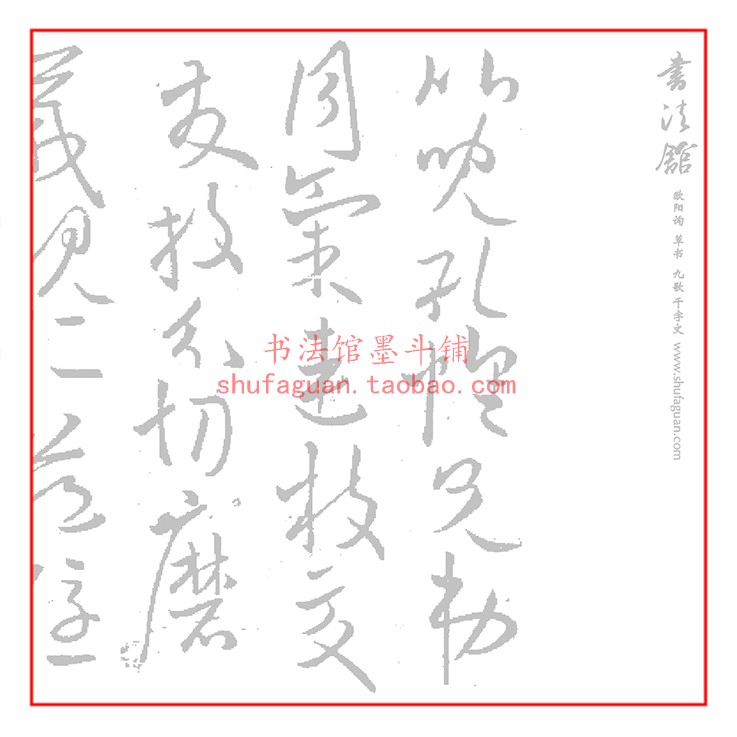 書法館
欧阳询 草书 九歌千字文 www.shufaguan.com
比兒孔懷兄弟
同氣連枝交
友投分切磨
箴規仁慈隱
书法馆墨斗铺
shufaguan.taobao.com